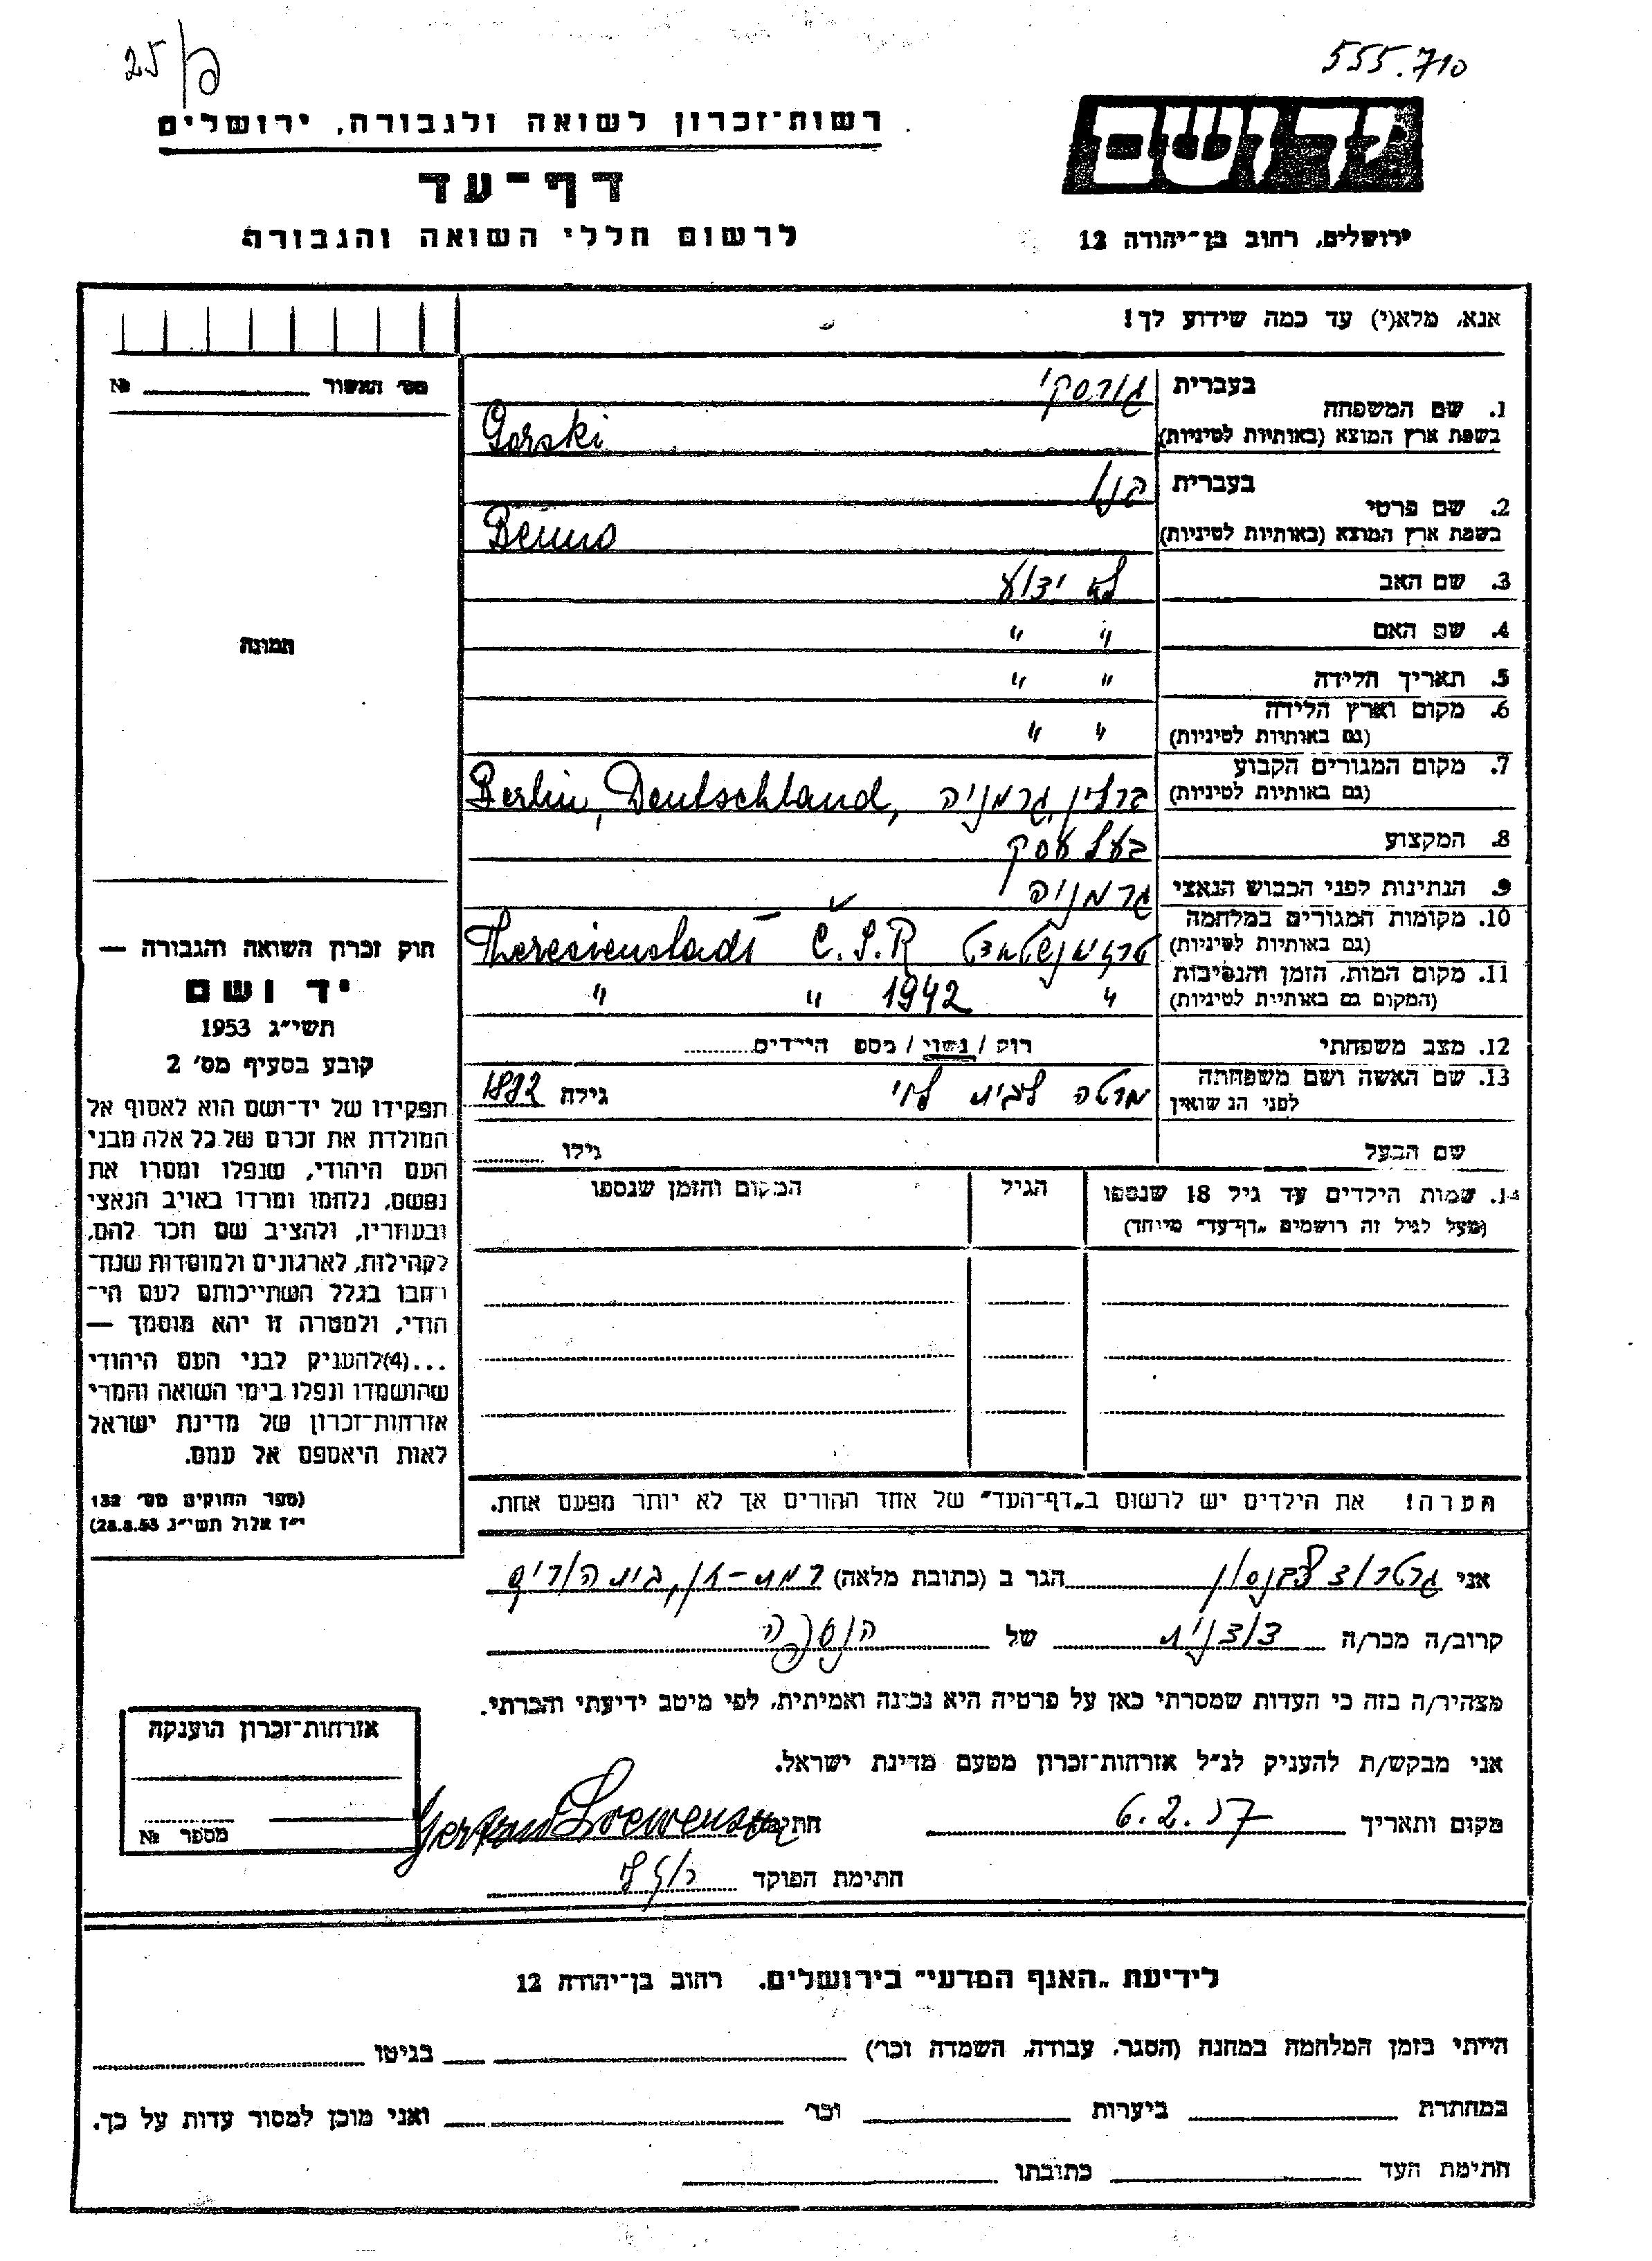 25/פ
555.710
רשות־זכרון לשואה ולגבורה, ירושלים
דף־עד
לרשום חללי השואה והגבורה
ידושם
ירושלים, רחוב בן־יהודה 12
אנא, מלא(י) עד כמה שידוע לך!
מס׳ האשור № 
תמונה
חוק זכרון השואה והגבורה —
יד ושם
תשי״ג 1953
קובע בסעיף מס׳ 2
תפקידו של יד־ושם הוא לאסוף אל
המולדת את זכרם של כל אלה מבני
העם היהודי, שנפלו ומסרו את
נפשם, נלחמו ומרדו באויב הנאצי
ובעוזריו, ולהציב שם וזכר להם,
לקהילות, לארגונים ולמוסדות שנח־
רבו בגלל השתייכותם לעם הי־
הודי, ולמטרה זו יהא מוסמך —
...(4)להעניק לבני העם היהודי
שהושמדו ונפלו בימי השואה והמרי
אזרחות־זכרון של מדינת ישראל
לאות היאספם אל עמם.
(ספר החוקים מס׳ 132
י״ז אלול תשי״ג 28.8.53)
1. שם המשפחה בעברית גורסקי
בשפת ארץ המוצא (באותיות לטיניות) Gorski
2. שם פרטי בעברית בנו
בשפת ארץ המוצא (באותיות לטיניות) Benno
3. שם האב לא ידוע
4. שם האם " "
5. תאריך הלידה " "
6. מקום וארץ הלידה " "
(גם באותיות לטיניות)
7. מקום המגורים הקבוע ברלין, גרמניה, Berlin, Deutschland
(גם באותיות לטיניות)
8. המקצוע בעל עסק
9. הנתינות לפני הכבוש הנאצי גרמניה
10. מקומות המגורים במלחמה טרזיאנשטאדט Theresienstadt Č.S.R
(גם באותיות לטיניות)
11. מקום המות, הזמן והנסיבות " 1942 " "
(המקום גם באותיות לטיניות)
12. מצב משפחתי רוק / נשוי / מספ הילדים
13. שם האשה ושם משפחתה מרטה לבית לוי גילה 1882
לפני הנשואין
שם הבעל גילו
14. שמות הילדים עד גיל 18 שנספו הגיל המקום והזמן שנספו
(מעל לגיל זה רושמים „דף־עד״ מיוחד)
הערה! את הילדים יש לרשום ב„דף־העד״ של אחד ההורים אך לא יותר מפעם אחת.
אני גרטרוד לבנסון הגר ב (כתובת מלאה) רמת-גן,
קרוב/ה מכר/ה של הנספה
מצהיר/ה בזה כי העדות שמסרתי כאן על פרטיה היא נכונה ואמיתית, לפי מיטב ידיעתי והכרתי.
אני מבקש/ת להעניק לנ״ל אזרחות־זכרון מטעם מדינת ישראל.
מקום ותאריך 6.2.57 חתימה Gertrud Loewenson
חתימת הפוקד
אזרחות־זכרון הוענקה
מספר №
לידיעת „האגף המדעי״ בירושלים. רחוב בן־יהודה 12
הייתי בזמן המלחמה במחנה (הסגר, עבודה, השמדה וכו׳) בגיטו
במחתרת ביערות וכו׳ ואני מוכן למסור עדות על כך.
חתימת העד כתובתו